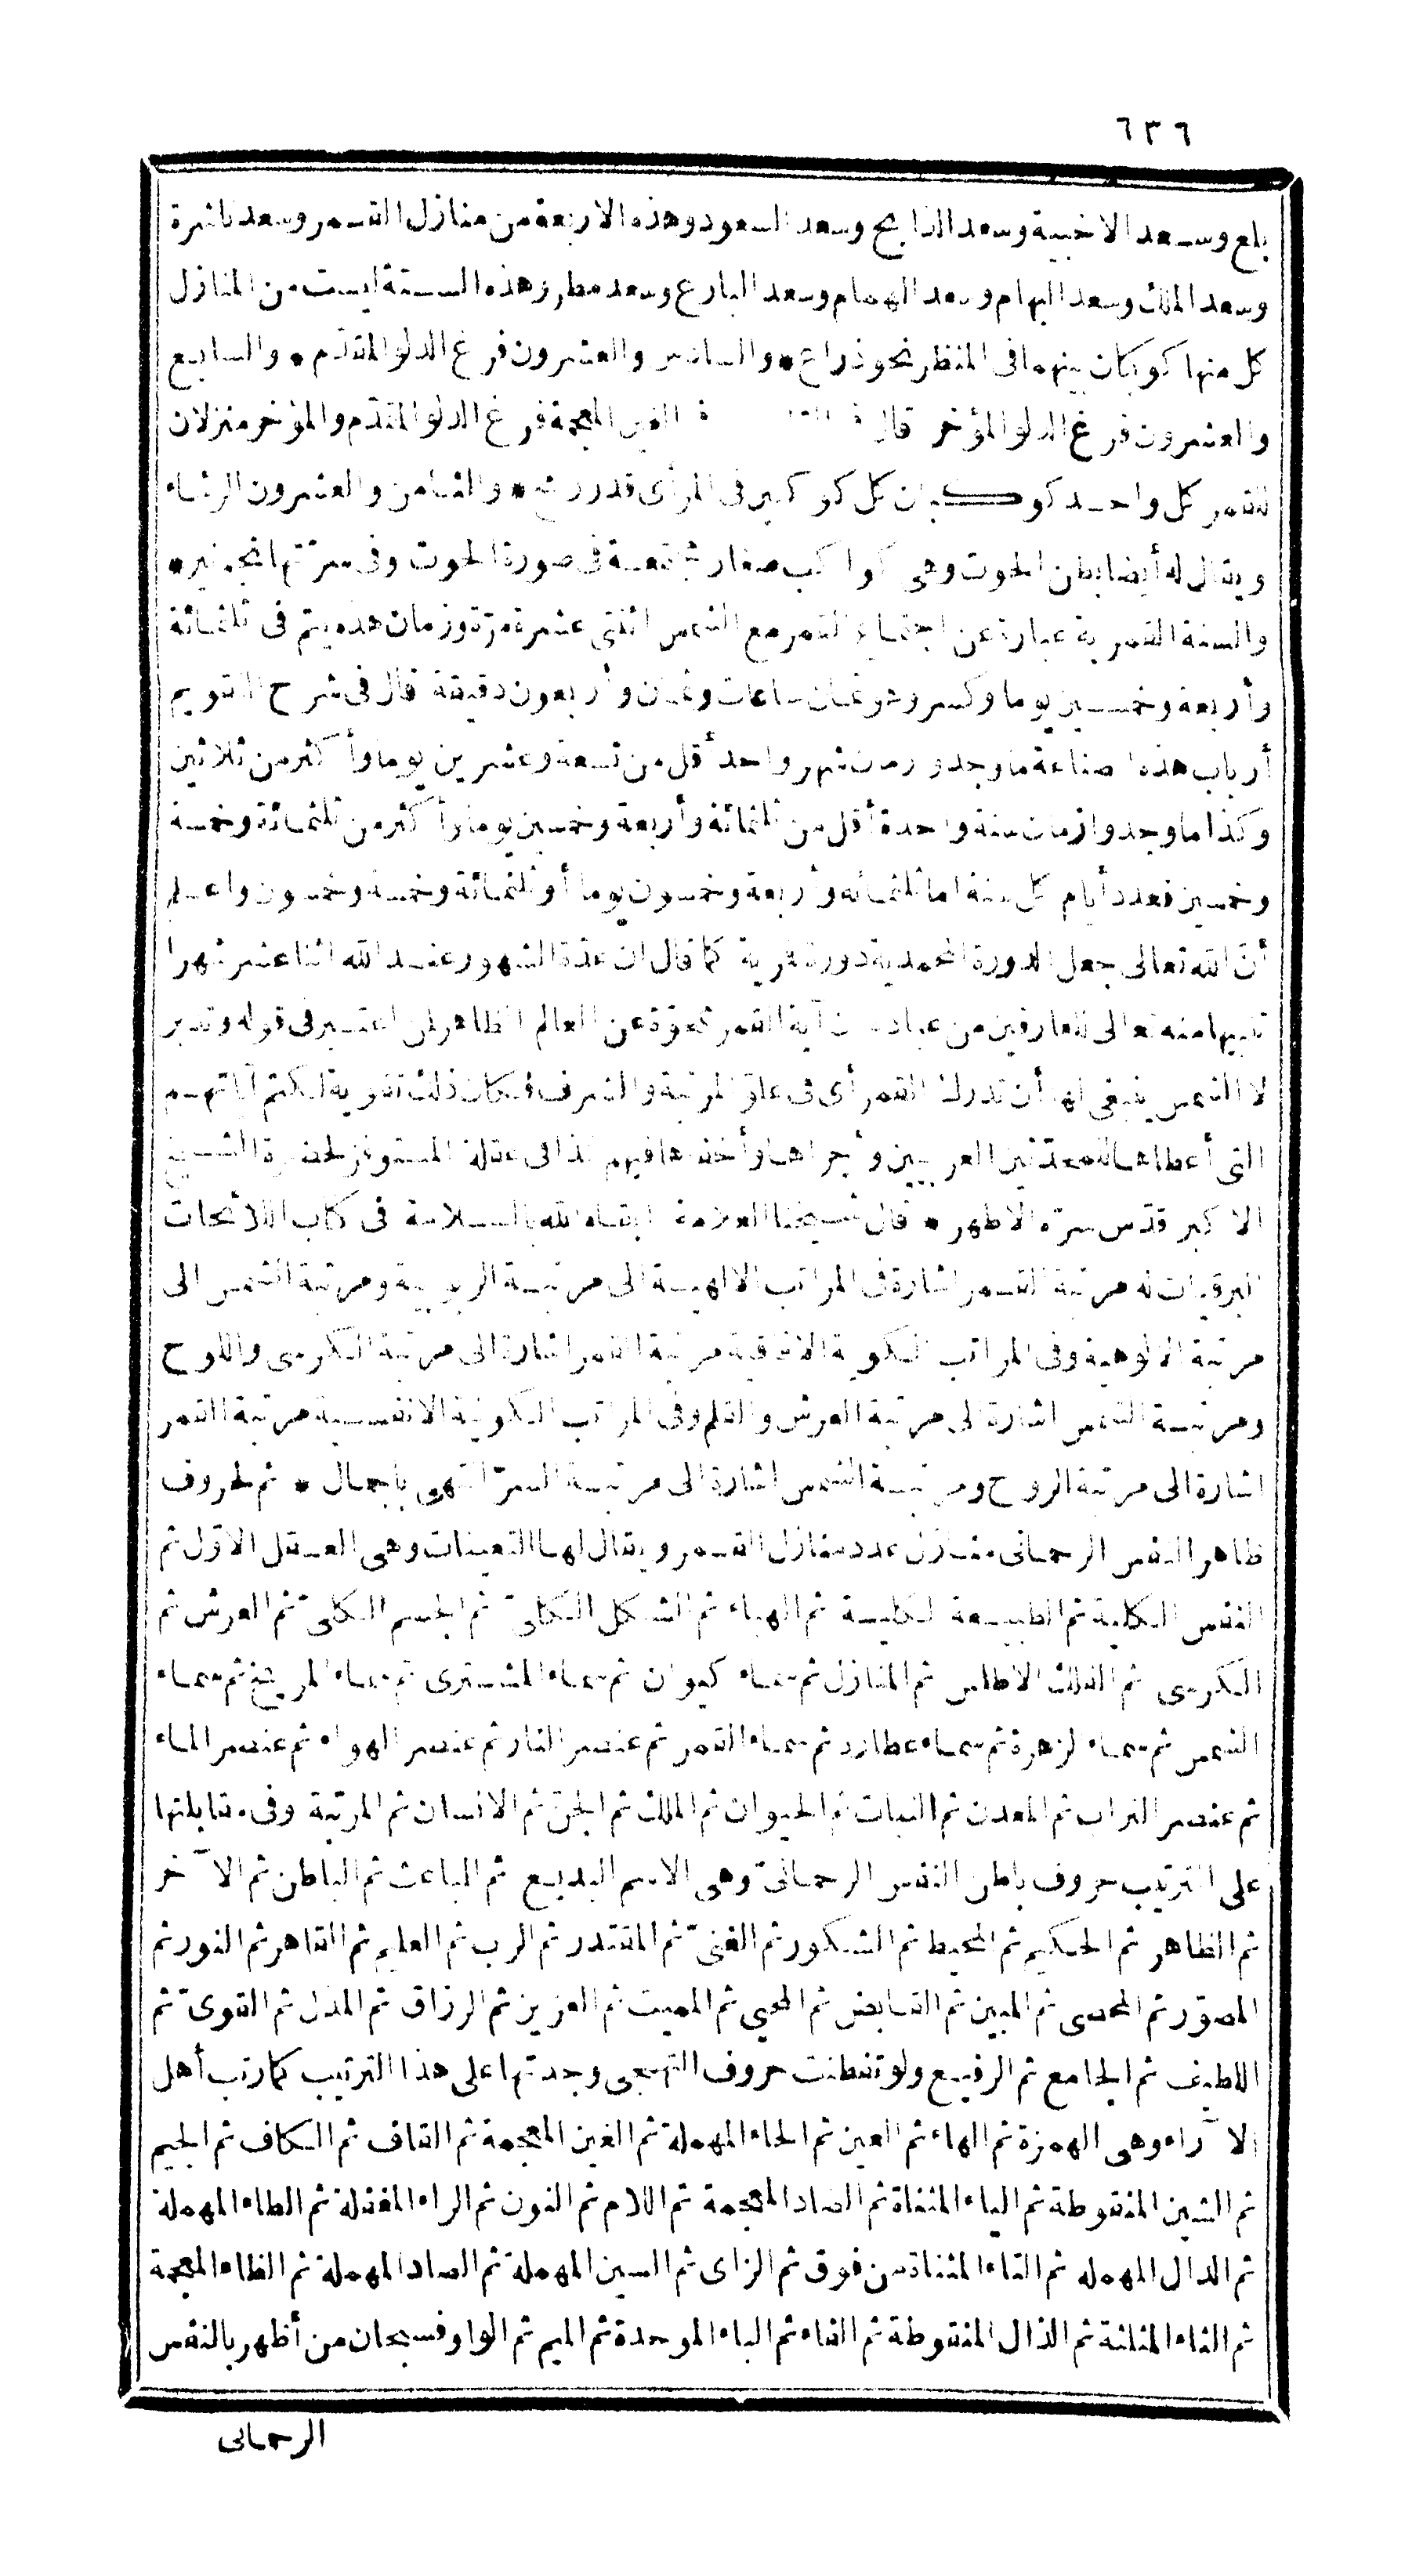 ٦٣٦
بلع وسعد الاخبية وسعد الذابح وسعد السعود وهذه الاربعة من منازل القمر وسعد ناشرة
وسعد الملك وسعد البهام وسعد الهمام وسعد البارع وسعد مطر وهذه الستة ليست من المنازل
كل منها كوكبان بينهما فى المنظر نحو ذراع * والسادس والعشرون فرغ الدلو المقدّم * والسابع
والعشرون فرغ الدلو المؤخر قال فى الغين المعجمة فرغ الدلو المقدّم والمؤخر منزلان
للقمر كل واحد كوكبان كل كوكبين فى المرأى قدر رمح * والثامن والعشرون الرشاء
ويقال له أيضا بطن الحوت وهى كواكب صغار مجتمعة فى صورة الحوت وفى سرّتها نجم نير *
والسنة القمرية عبارة عن اجتماع القمر مع الشمس اثنتى عشرة مرّة وزمان هذه يتم فى ثلثمائة
وأربعة وخمسين يوما وكسر وهو ثمان ساعات وثمان وأربعون دقيقة قال فى شرح التقويم
أرباب هذه الصناعة ما وجدوا زمان شهر واحد أقل من تسعة وعشرين يوما وأكثر من ثلاثين
وكذا ما وجدوا زمان سنة واحدة أقل من ثلثمائة وأربعة وخمسين يوما وأكثر من ثلثمائة وخمسة
وخمسين فعدد أيام كل سنة اما ثلثمائة وأربعة وخمسون يوما أو ثلثمائة وخمسة وخمسون واعلم
أنّ الله تعالى جعل الدورة المحمدية دورة قمرية كما قال ان عدّة الشهور عند الله اثنا عشر شهرا
تنبيها منه تعالى للعارفين من عباده ان آية القمر ممحوّة عن العالم الظاهر لمن اعتبر فى قوله وتدبر
لا الشمس ينبغى لها أن تدرك القمر أى فى علوّ المرتبة والشرف فكان ذلك تقوية لكتم آياتهم
التى أعطاها للمحمديين العربيين وأجراها وأخفاها فيهم كذا فى عقلة المستوفز لحضرة الشيخ
الاكبر قدّس سرّه الاطهر * قال شيخنا العلامة ابقاه الله بالسلامة فى كتاب اللائحات
البرقيات له مرتبة القمر اشارة فى المراتب الالهية الى مرتبة الربوبية ومرتبة الشمس الى
مرتبة الالوهية وفى المراتب الكونية الافاقية مرتبة القمر اشارة الى مرتبة الكرسى واللوح
ومرتبة الشمس اشارة الى مرتبة العرش والقلم وفى المراتب الكونية الانفسية مرتبة القمر
اشارة الى مرتبة الروح ومرتبة الشمس اشارة الى مرتبة السرّ انتهى باجمال * ثم لحروف
ظاهر النفس الرحمانى منازل عدد منازل القمر ويقال لها التعينات وهى العقل الاوّل ثم
النفس الكلية ثم الطبيعة الكلية ثم الهباء ثم الشكل الكلىّ ثم الجسم الكلىّ ثم العرش ثم
الكرسى ثم الفلك الاطلس ثم المنازل ثم سماء كيوان ثم سماء المشترى ثم سماء المريخ ثم سماء
الشمس ثم سماء الزهرة ثم سماء عطارد ثم سماء القمر ثم عنصر النار ثم عنصر الهواء ثم عنصر الماء
ثم عنصر التراب ثم المعدن ثم النبات ثم الحيوان ثم الملك ثم الجنّ ثم الانسان ثم المرتبة وفى مقابلتها
على الترتيب حروف باطن النفس الرحمانىّ وهى الاسم البديع ثم الباعث ثم الباطن ثم الآخر
ثم الظاهر ثم الحكيم ثم المحيط ثم الشكور ثم الغنىّ ثم المقتدر ثم الرب ثم العليم ثم القاهر ثم النور ثم
المصوّر ثم المحصى ثم المبين ثم القابض ثم المحيى ثم المميت ثم العزيز ثم الرزاق ثم المذل ثم القوىّ ثم
اللطيف ثم الجامع ثم الرفيع ولو تفطنت حروف التهجى وجدتها على هذا الترتيب كما رتب أهل
الآراء وهى الهمزة ثم الهاء ثم العين ثم الحاء المهملة ثم الغين المعجمة ثم القاف ثم الكاف ثم الجيم
ثم الشين المنقوطة ثم الياء المثناة ثم الضاد المعجمة ثم اللام ثم النون ثم الراء المغفلة ثم الطاء المهملة
ثم الدال المهمله ثم التاء المثناة من فوق ثم الزاى ثم السين المهملة ثم الصاد المهملة ثم الظاء المعجمة
ثم الثاء المثلثة ثم الذال المنقوطة ثم الفاء ثم الباء الموحدة ثم الميم ثم الواو فسبحان من أظهر بالنفس
الرحمانى